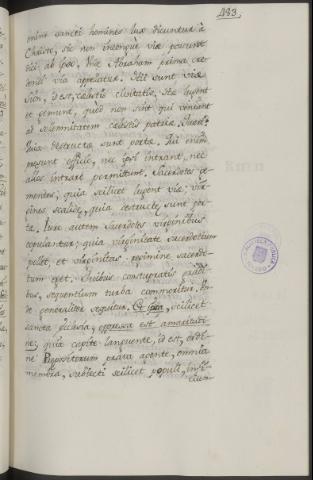 483.
enim sancti homines lux dicuntur à
Christo, sic non incongruè viæ possunt
dici ab ipso. Unde Abraham prima cre-
dendi via appellatur. Sed sunt viæ
Sion, id est, cælestis civitatis. Hæ lugent
et gemunt, quòd non sint qui veniant
ad solemnitatem cælestis patriæ. Quare?
Quia destructæ sunt portæ. Qui enim
præsunt Ecclesiæ, nec ipsi intrant, nec
alios intrare permittunt. Sacerdotes ge-
mentes, quia scilicet lugent viæ: Vir-
gines squalidæ, quia destructæ sunt por-
tæ. Jure autem Sacerdotes virginibus
copulantur; quia virginitate sacerdotium
pollet, et virginitas regimine sacerdo-
tum eget. Quibus constupratis prædi-
bus, sequentium turba commoritur. Un-
de generaliter sequitur. Et ipsa, scilicet
sancta Ecclesia, oppressa est amaritudi-
ne; quia capite languente, id est, ordi-
ne Præpositorum prava agente, omnia
membra, subjecti scilicet populi, infi-
cium-